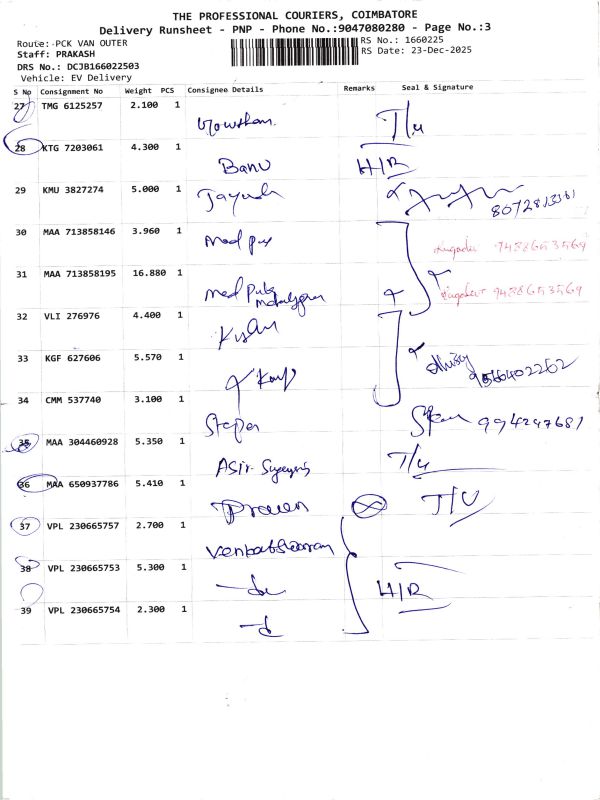 THE PROFESSIONAL COURIERS, COIMBATORE
Delivery Runsheet - PNP - Phone No.:9047080280 - Page No.:3
Route: PCK VAN OUTER
RS No.: 1660225
Staff: PRAKASH
RS Date: 23-Dec-2025
DRS No.: DCJB166022503
Vehicle: EV Delivery
S No Consignment No Weight PCS Consignee Details Remarks Seal & Signature
27 TMG 6125257 2.100 1 T/U
28 KTG 7203061 4.300 1 Banu H/R
29 KMU 3827274 5.000 1
30 MAA 713858146 3.960 1 Med 9488653569
31 MAA 713858195 16.880 1 Med 9488653569
32 VLI 276976 4.400 1
33 KGF 627606 5.570 1
34 CMM 537740 3.100 1 9942497681
35 MAA 304460928 5.350 1 Asir T/U
36 MAA 650937786 5.410 1 Praveen T/U
37 VPL 230665757 2.700 1
38 VPL 230665753 5.300 1 -do H/R
39 VPL 230665754 2.300 1 -d